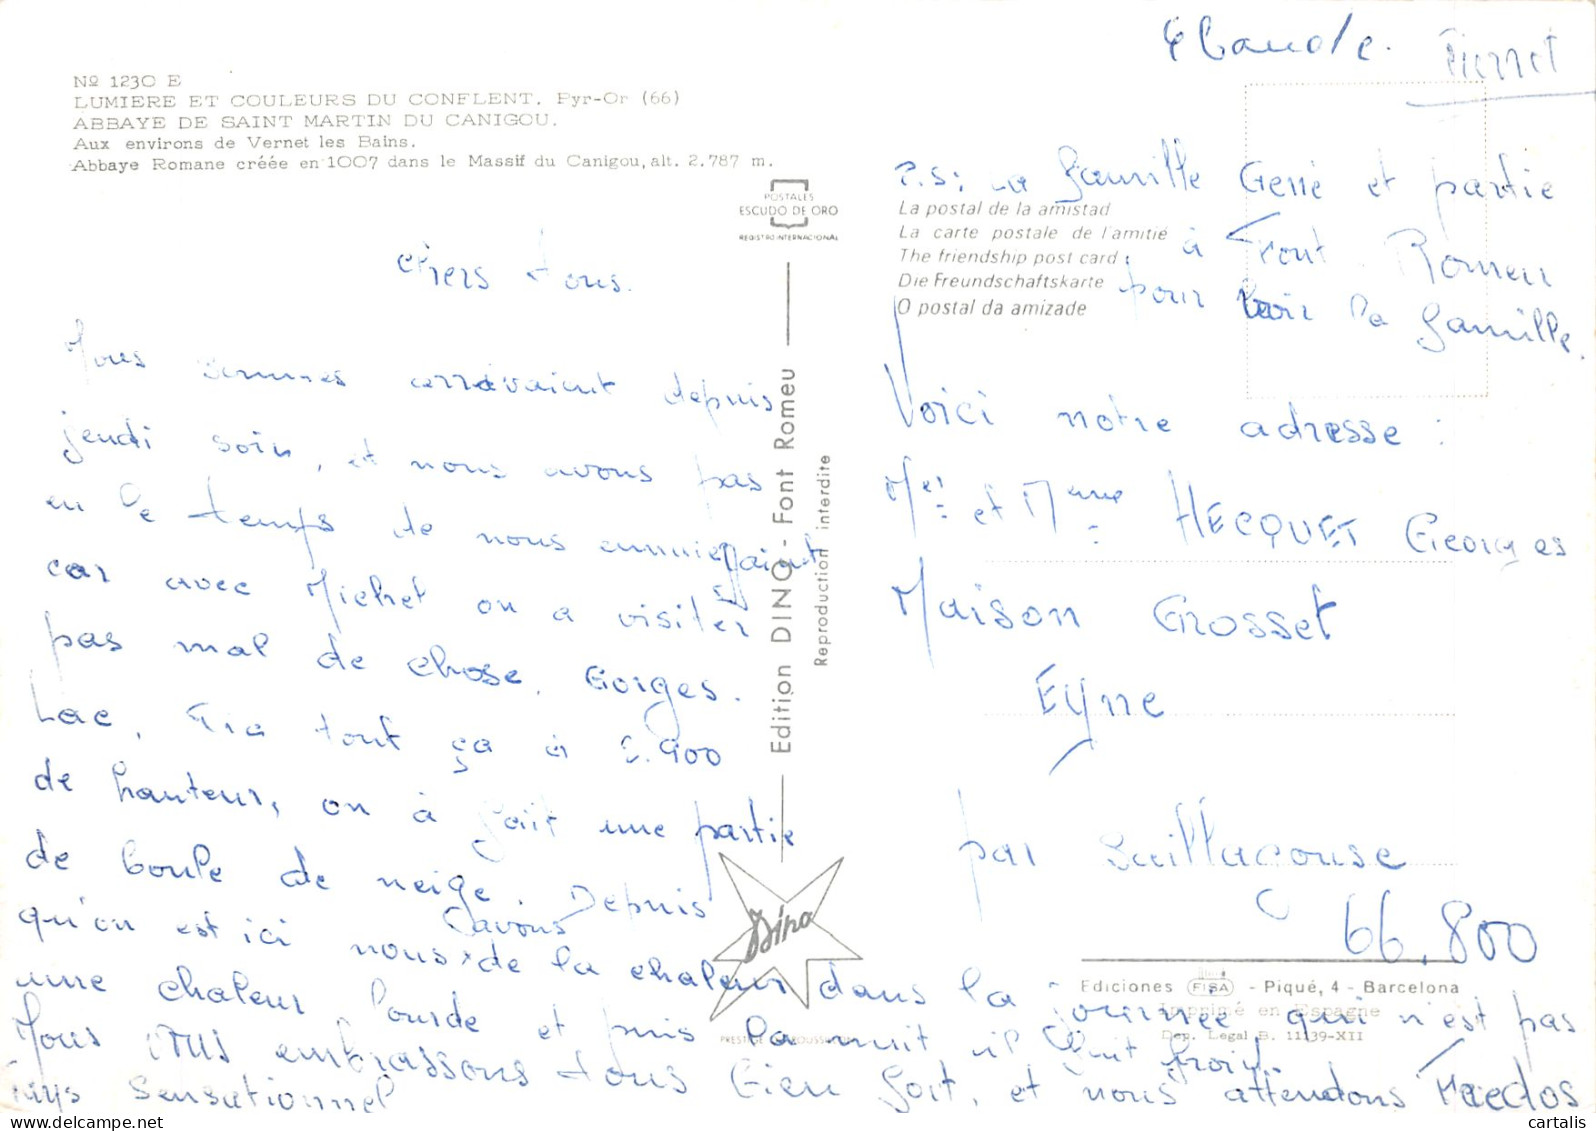 Nº 1230 E
LUMIERE ET COULEURS DU CONFLENT. Pyr-Or (66)
ABBAYE DE SAINT MARTIN DU CANIGOU.
Aux environs de Vernet les Bains.
Abbaye Romane créée en 1007 dans le Massif du Canigou, alt. 2.787 m.
POSTALES
ESCUDO DE ORO
REGISTRO INTERNACIONAL
chers tous.
Nous sommes arrávaient depuis
jeudi soir, et nous avons pas
eu le temps de nous
car avec Michel on a visiter
pas mal de chose. Gorges.
Lac, tout ça à 2.900
de hauteur, on à fait une partie
de boule de neige. Depuis
qu'on est ici nous avons de la chaleur dans la journée qui n'est pas
une chaleur lourde et puis la nuit il fait froid.
Nous vous embrassons tous bien fort, et nous attendons
Pays sensationnel
Edition DINO - Font Romeu
Reproduction interdite
Dino
La postal de la amistad
La carte postale de l'amitié
The friendship post card
Die Freundschaftskarte
O postal da amizade
P.S: La famille et partie
à Font Romeu
pour voir la famille.
Voici notre adresse :
Mr et Mme HECQUET Georges
Maison Grosset
Eyne
par Saillagouse
66.800
Ediciones FISA - Piqué, 4 - Barcelona
Imprimé en Espagne
Dep. Legal B. 11139-XII
cartalis.com